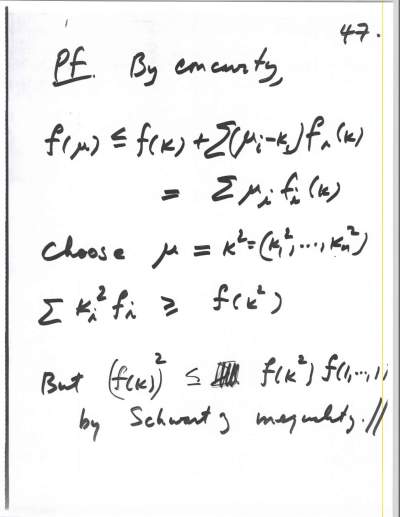 47.
Pf. By concavity,
f(μ) ≤ f(κ) + Σ(μᵢ-κᵢ)fᵢ(κ)
= Σ μᵢ fᵢ(κ)
Choose μ = κ² = (κ₁², ..., κₙ²)
Σ κᵢ² fᵢ ≥ f(κ²)
But (f(κ))² ≤ f(κ²) f(1,...,1)
by Schwartz inequality. //